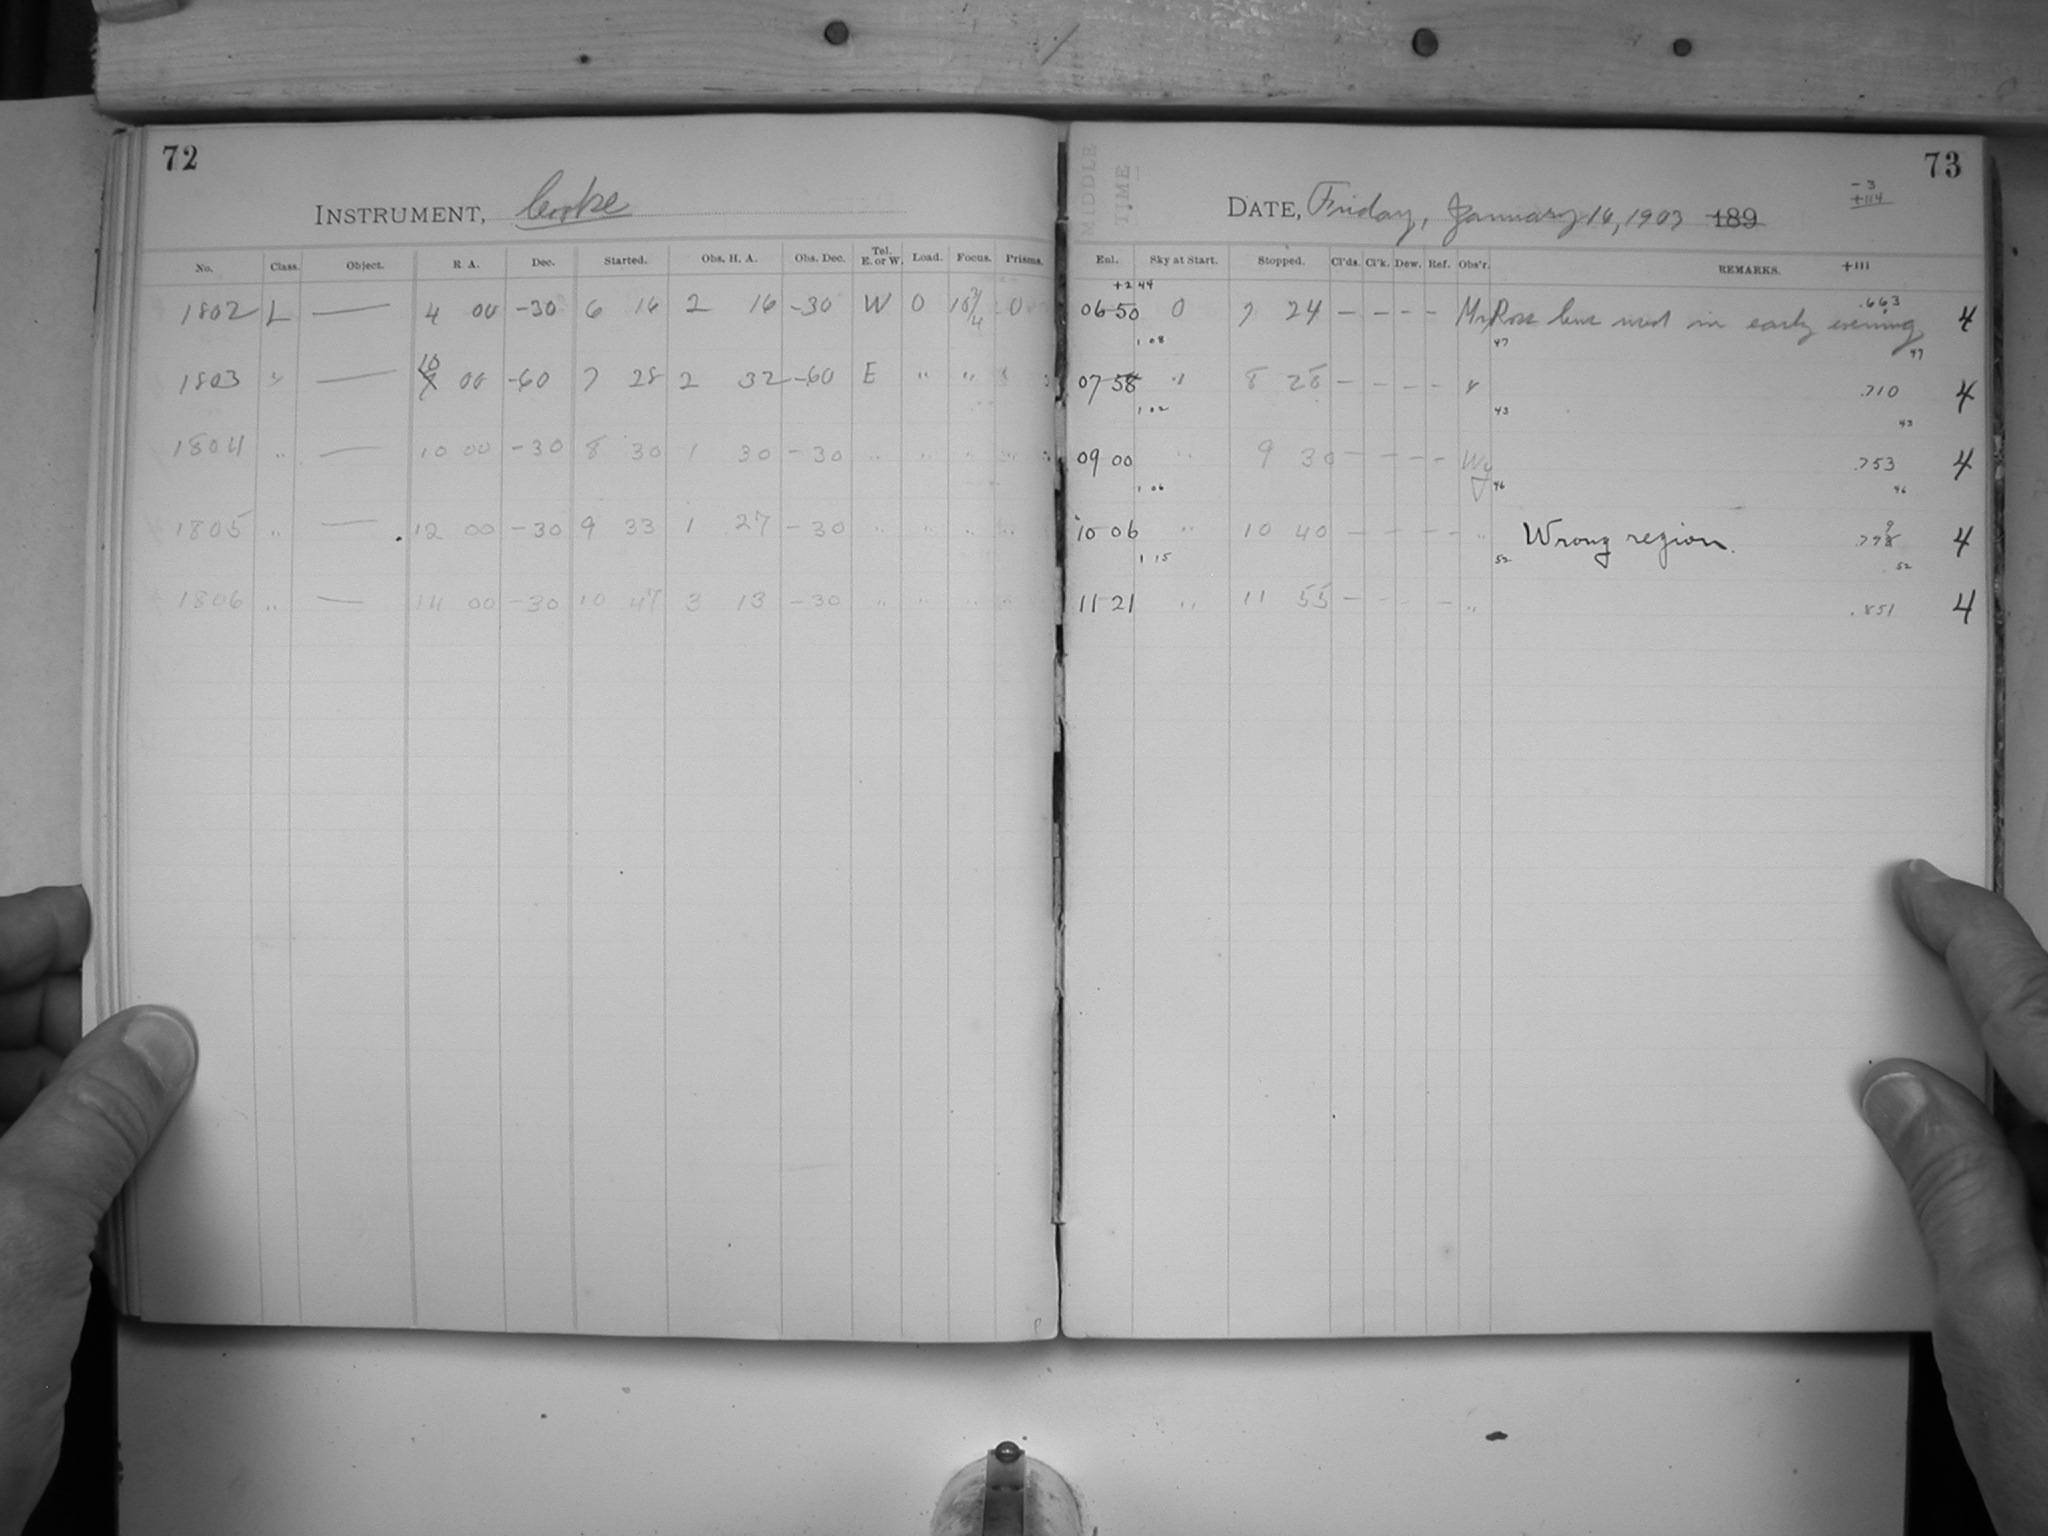 72
INSTRUMENT, Cooke
No. Class. Object. R. A. Dec. Started. Obs. H. A. Obs. Dec. Tel. E. or W. Load. Focus. Prisms.
1802 L — 4 00 -30 6 16 2 16 -30 W 0 0
1803 " — 10 00 -60 7 28 2 32 -60 E " "
1804 " — 10 00 -30 8 30 1 30 -30 " " " "
1805 " — 12 00 -30 9 33 1 27 -30 " " " "
1806 " — 14 00 -30 10 47 3 13 -30 " " " "
73
MIDDLE TIME
-3
+114
DATE, Friday, January 16, 1903 189
Enl. Sky at Start. Stopped. Cl'ds. Cl'k. Dew. Ref. Obs'r. REMARKS. +111
+2 44
06 50 0 7 24 — — — — Ross lens used in early evening .663 4
1 08 47 47
07 58 " 8 28 — — — — " .710 4
1 02 43 43
09 00 " 9 30 — — — — .753 4
1 06 46 46
10 06 " 10 40 — — — — " Wrong region. 4
1 15 52 52
11 21 " 11 55 — — — — " .851 4